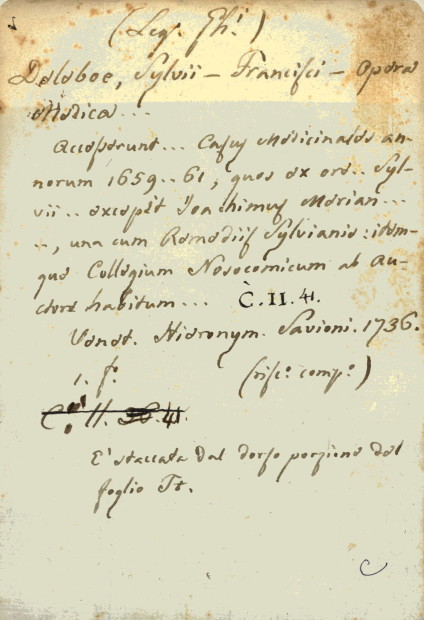 (Leg.º Gh.ⁱ)
Deleboe, Sylvii – Francisci – Opera
Medica...
Accesserunt... Casus Medicinales an-
norum 1659..61, quos ex ore.. Syl-
vii.. excepit Joachimus Merian...
.., una cum Remediis Sylvianis: item-
que Collegium Nosocomicum ab Au-
ctore habitum... C.II.41.
Venet. Hieronym. Savioni. 1736.
1. fº. (risº. compº.)
C. II. 41.
E' staccata dal dorso porzione del
foglio Tt.